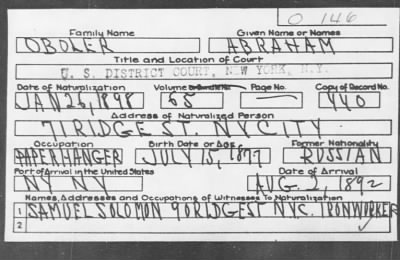 O 146
Family Name Given Name or Names
OBOLER ABRAHAM
Title and Location of Court
U. S. DISTRICT COURT, NEW YORK, N.Y.
Date of Naturalization Volume or Bundle No. Page No. Copy of Record No.
JAN 26, 1898 65 — 440
Address of Naturalized Person
71 RIDGE ST. N Y CITY
Occupation Birth Date or Age Former Nationality
PAPERHANGER JULY 15, 1877 RUSSIAN
Port of Arrival in the United States Date of Arrival
NY NY AUG. 2, 1892
Names, Addresses and Occupations of Witnesses To Naturalization
1 SAMUEL SOLOMON 90 RIDGE ST NYC. IRONWORKER
2